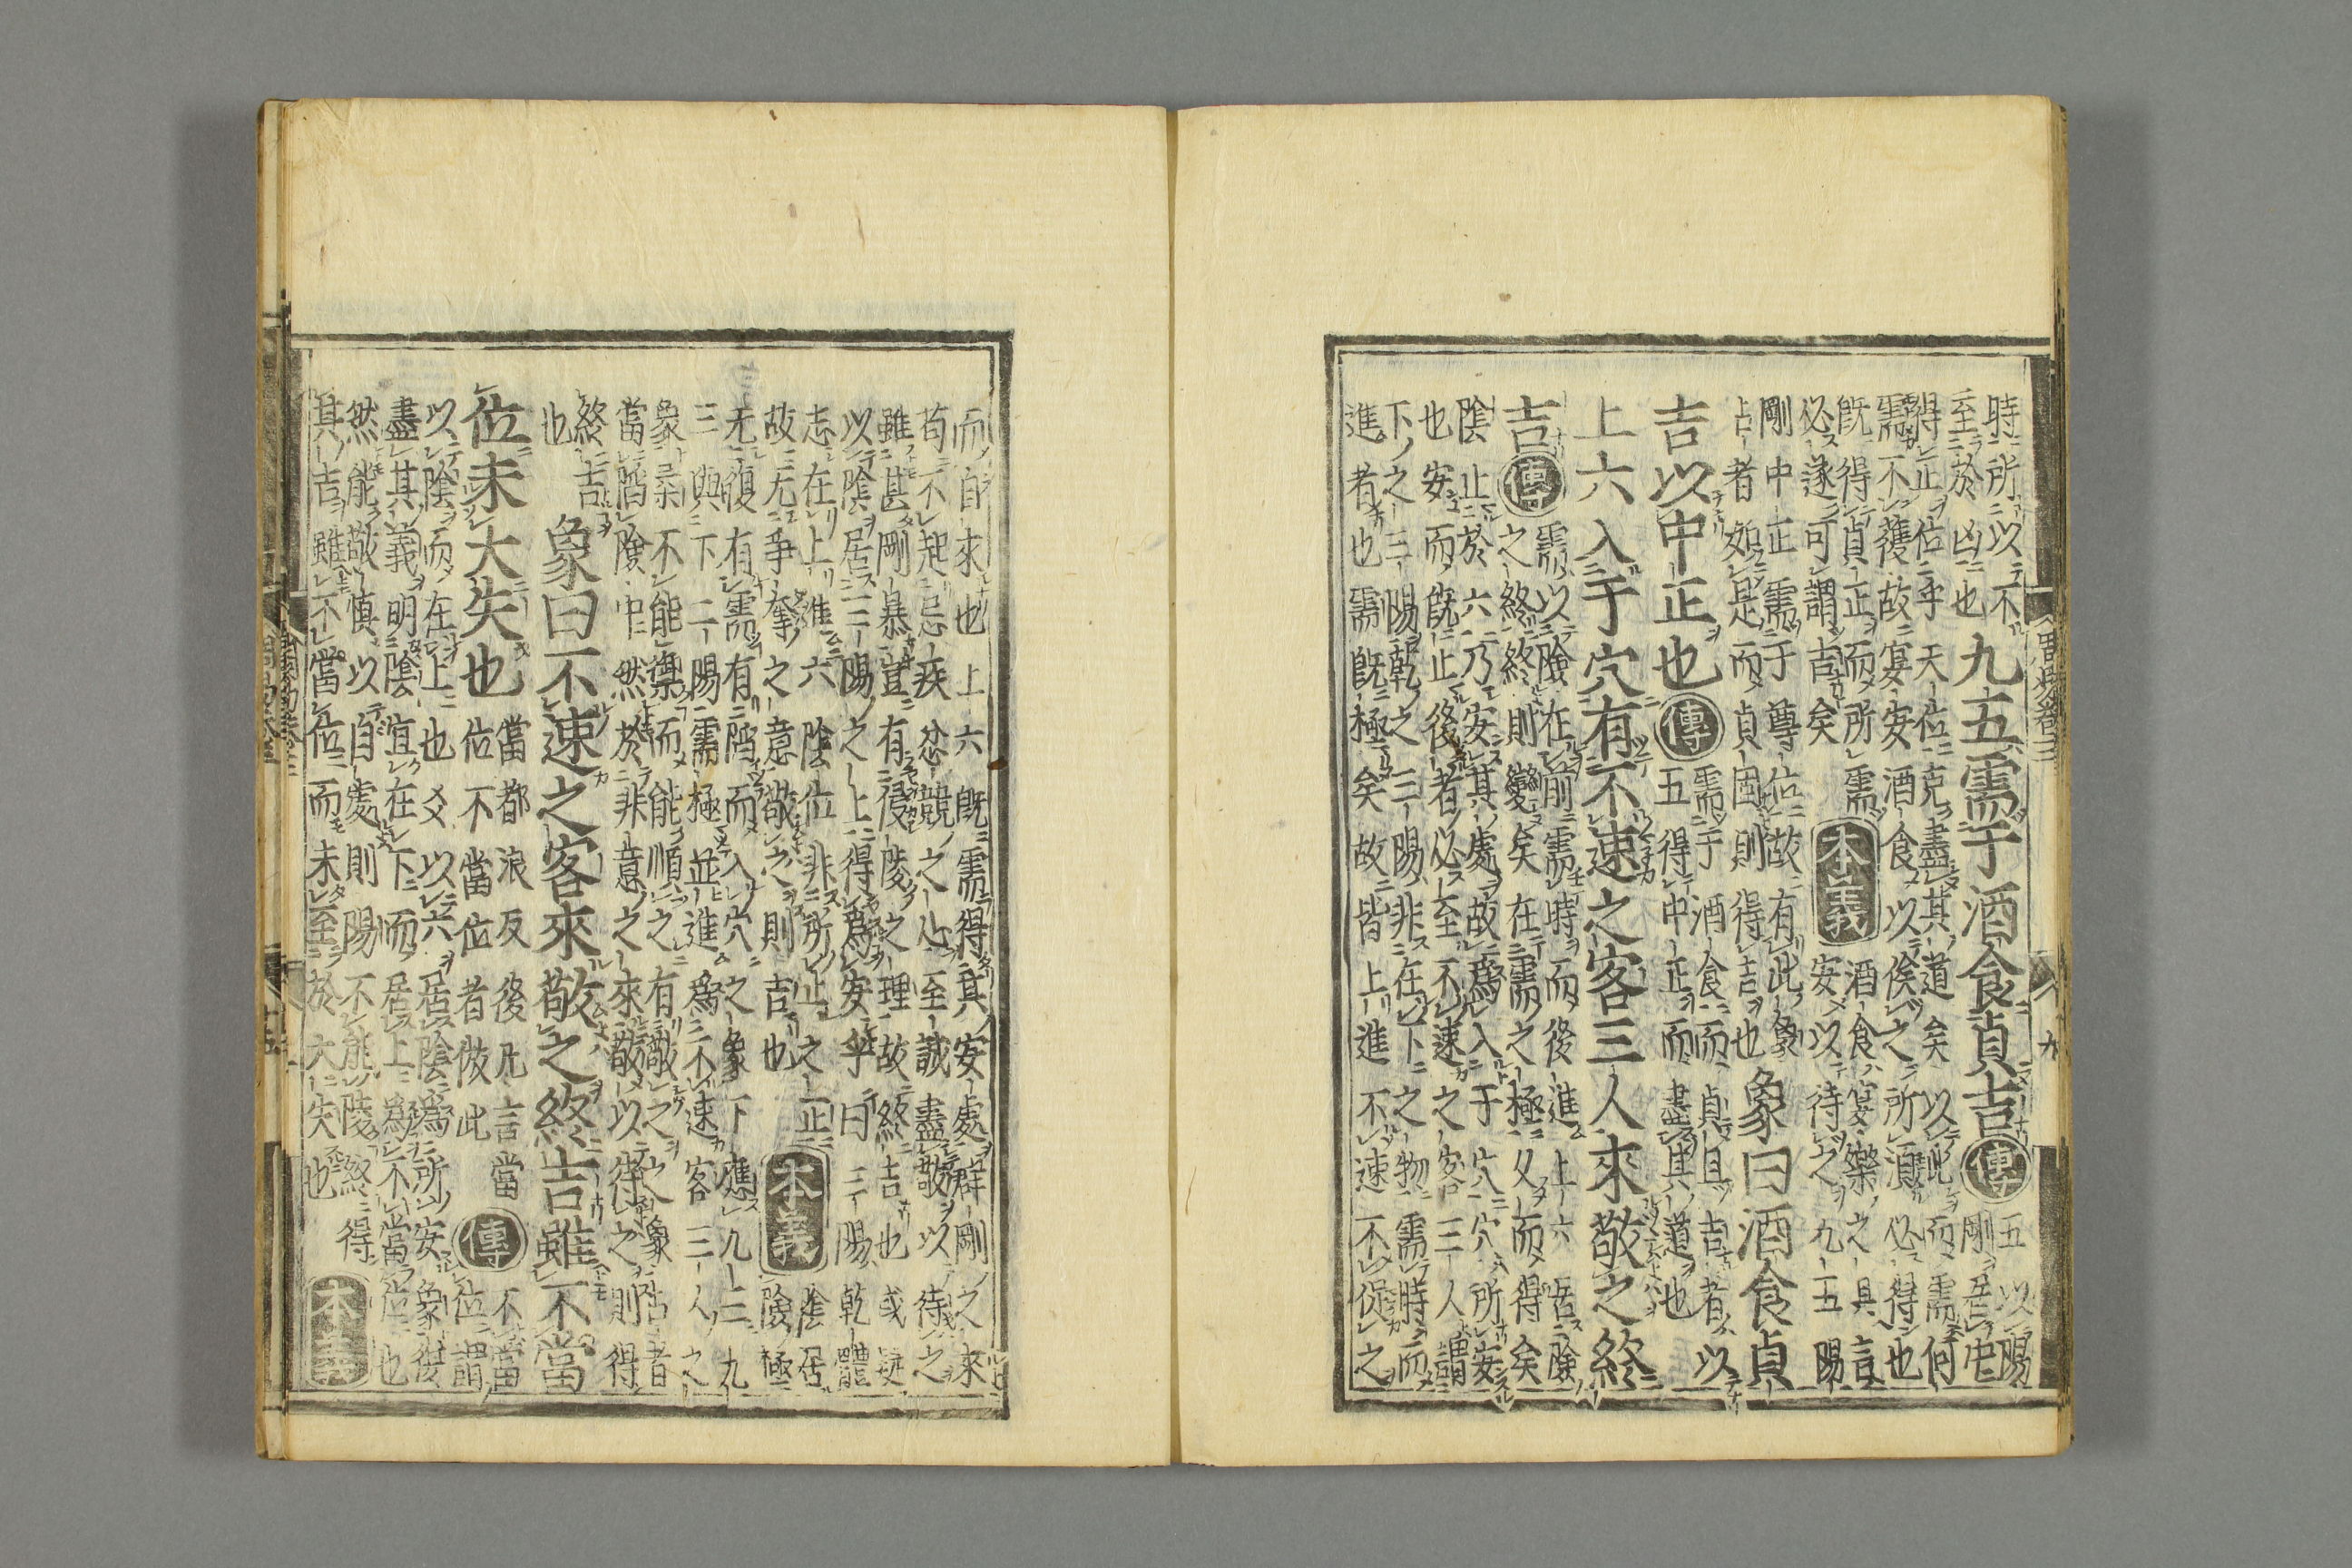 時所以不
至於凶也
九五需于酒食貞吉
傳
五以陽
剛居中
得正位乎天位克盡其道矣以此而需何
需不獲故宴安酒食以俟之所須必得也
既得貞正而所需
必遂可謂吉矣
本義
酒食宴樂之具言
安以待之九五陽
剛中正需于尊位故有此象
占者如是而貞固則得吉也
象曰酒食貞
吉以中正也
傳
需于酒食而貞且吉者以
五得中正而盡其道也
上六入于穴有不速之客三人來敬之終
吉
傳
需以險在前需時而後進上六居險
之終終則變矣在需之極久而得矣
陰止於六乃安其處故爲入于穴穴所安
也安而既止後者必至不速之客三人謂
下之三陽乾之三陽非在下之物需時而
進者也需既極矣故皆上進不速不促之
而自來也上六既需得其安處群剛之來
苟不起忌疾忿競之心至誠盡敬以待之
雖甚剛暴豈有侵陵之理故終吉也或疑
以陰居三陽之上得爲安乎曰三陽乾體
志在上進六陰位非所止之正
故无爭奪之意敬之則吉也
本義
陰居
險極
无復有需有陷而入穴之象下應九三九
三與下二陽需極並進爲不速客三人之
象柔不能禦而能順之有敬之之象占者
當陷險中然於非意之來敬以待之則得
終吉
也
象曰不速之客來敬之終吉雖不當
位未大失也
當都浪反後凡言當
位不當位者倣此
傳
不當
位謂
以陰而在上也爻以六居陰爲所安象復
盡其義明陰宜在下而居上爲不當位也
然能敬慎以自處則陽不能陵終得
其吉雖不當位而未至於大失也
本義